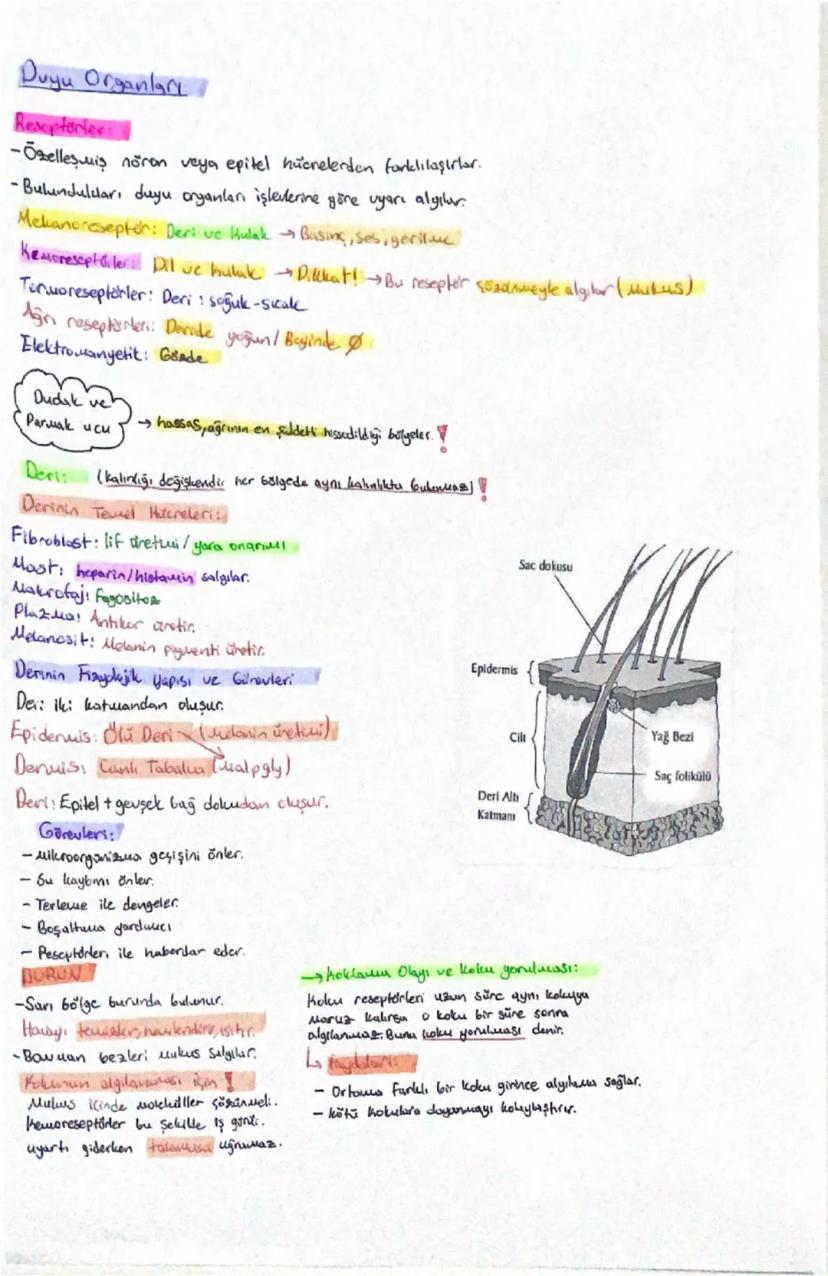 Duyu Organları
Reseptörler:
- Özelleşmiş nöron veya epitel hücrelerden farklılaşırlar.
- Bulundukları duyu organları işlevlerine göre uyarı algılar.
Mekanoreseptör: Deri ve Kulak → Basınç, ses, gerilme
Kemoreseptörler: Dil ve kulak → Dikkat! → Bu reseptör çözünmeyle algılar (Mukus)
Termoreseptörler: Deri : soğuk-sıcak
Ağrı reseptörleri: Deride yoğun / Beyinde Ø
Elektromanyetik: Gözde
Dudak ve
Parmak ucu → hassas, ağrının en şiddetli hissedildiği bölgeler. !
Deri: (kalınlığı değişkendir her bölgede aynı kalınlıkta bulunmaz) !
Derinin Temel Hücreleri:
Fibroblast: lif üretimi / yara onarımı
Mast: heparin/histamin salgılar.
Makrofaj: Fagositoz
Plazma: Antikor üretir.
Melanosit: Melanin pigmenti üretir.
Derinin Fizyolojik Yapısı ve Görevleri
Deri iki katmandan oluşur.
Epidermis: Ölü Deri (Melanin üretimi)
Dermis: Canlı Tabaka (malpgly)
Deri: Epitel + gevşek bağ dokudan oluşur.
Görevleri:
- Mikroorganizma geçişini önler.
- Su kaybını önler.
- Terleme ile dengeler.
- Boşaltıma yardımcı
- Reseptörleri ile haberdar eder.
Sac dokusu
Epidermis
Cilt
Yağ Bezi
Saç folikülü
Deri Altı
Katmanı
BURUN
- Sarı bölge burunda bulunur.
Havayı temizler, nemlendirir, ısıtır.
- Bowman bezleri mukus salgılar.
Kokunun algılanması için !
Mukus içinde moleküller çözünmeli.
Kemoreseptörler bu şekilde iş görür.
uyartı giderken talamusa uğramaz.
→ Koklama Olayı ve Koku yorulması:
Koku reseptörleri uzun süre aynı kokuya
maruz kalırsa o koku bir süre sonra
algılanmaz. Buna koku yorulması denir.
↳ Faydaları:
- Ortama farklı bir koku girince algılama sağlar.
- Kötü kokulara dayanmayı kolaylaştırır.